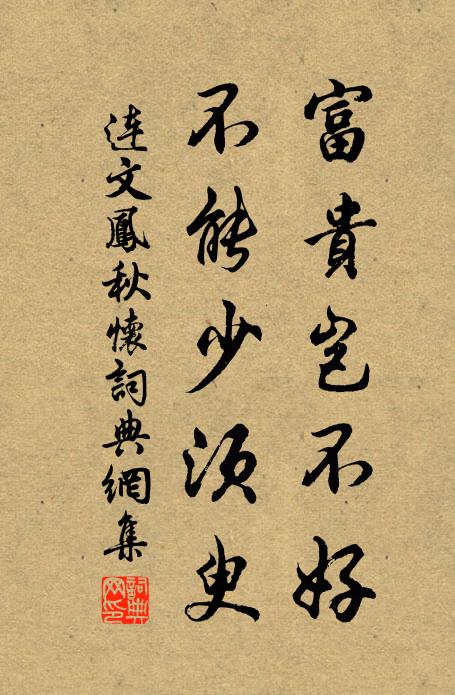 富貴豈不好
不能少須臾
連文鳳秋懷詞典網集
詞典網印